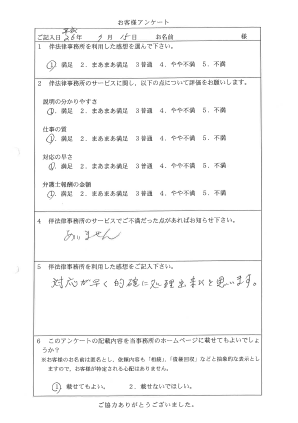 お客様アンケート
ご記入日 平成26年 9月 15日 お名前 様
1 伴法律事務所を利用した感想を選んで下さい。
①.満足 2.まあまあ満足 3普通 4.やや不満 5.不満
2 伴法律事務所のサービスに関し、以下の点について評価をお願いします。
説明の分かりやすさ
①.満足 2.まあまあ満足 3普通 4.やや不満 5.不満
仕事の質
①.満足 2.まあまあ満足 3普通 4.やや不満 5.不満
対応の早さ
①.満足 2.まあまあ満足 3普通 4.やや不満 5.不満
弁護士報酬の金額
①.満足 2.まあまあ満足 3普通 4.やや不満 5.不満
4 伴法律事務所のサービスでご不満だった点があればお知らせ下さい。
ありません
5 伴法律事務所を利用した感想をご記入下さい。
対応が早く的確に処理出来たと思います。
6 このアンケートの記載内容を当事務所のホームページに載せてもよいでしょ
うか?
※お客様のお名前は匿名とし、依頼内容も「相続」、「債権回収」などと抽象的な表示とし
ますので、お客様が特定される心配はありません。
①.載せてもよい。 2.載せないでほしい。
ご協力ありがとうございました。